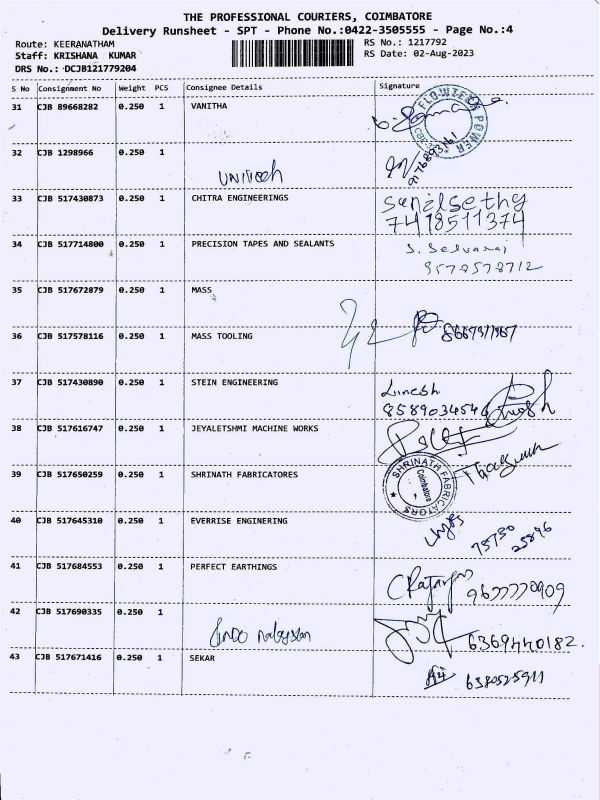 THE PROFESSIONAL COURIERS, COIMBATORE
Delivery Runsheet - SPT - Phone No.:0422-3505555 - Page No.:4
Route: KEERANATHAM
RS No.: 1217792
Staff: KRISHANA KUMAR
RS Date: 02-Aug-2023
DRS No.: DCJB121779204
S No Consignment No Weight PCS Consignee Details Signature
31 CJB 89668282 0.250 1 VANITHA
FLOWTECH POWER
32 CJB 1298966 0.250 1
33 CJB 517430873 0.250 1 CHITRA ENGINEERINGS sunilsethy
7418511374
34 CJB 517714800 0.250 1 PRECISION TAPES AND SEALANTS S. Selvaraj
35 CJB 517672879 0.250 1 MASS
36 CJB 517578116 0.250 1 MASS TOOLING
37 CJB 517430890 0.250 1 STEIN ENGINEERING Linesh
8589034546
38 CJB 517616747 0.250 1 JEYALETSHMI MACHINE WORKS
39 CJB 517650259 0.250 1 SHRINATH FABRICATORES
SHRINATH FABRICATORS
Coimbatore
40 CJB 517645310 0.250 1 EVERRISE ENGINERING
75730
25896
41 CJB 517684553 0.250 1 PERFECT EARTHINGS
9677770909
42 CJB 517690335 0.250 1
Indo malaysian
6369440182
43 CJB 517671416 0.250 1 SEKAR
6380525911